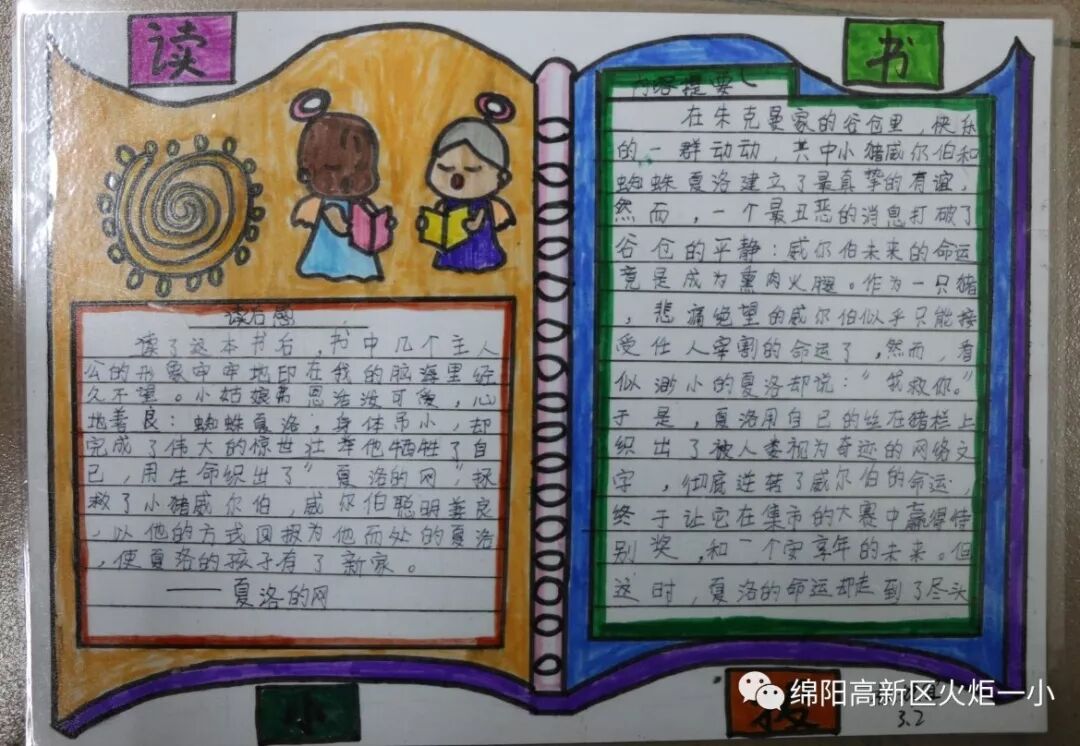 读
书
读后感
读了这本书后，书中几个主人
公的形象牢牢地印在我的脑海里经
久不望。小姑娘弗恩活泼可爱，心
地善良：蜘蛛夏洛，身体吊小，却
完成了伟大的惊世壮举他牺牲了自
己，用生命织出了“夏洛的网”拯
救了小猪威尔伯，威尔伯聪明善良
，以他的方式回报为他而处的夏洛
，使夏洛的孩子有了新家。
——夏洛的网
内容提要
在朱克曼家的谷仓里，快乐
的一群动动，其中小猪威尔伯和
蜘蛛夏洛建立了最真挚的有谊，
然而，一个最丑恶的消息打破了
谷仓的平静：威尔伯未来的命运
竟是成为熏肉火腿。作为一只猪
，悲痛绝望的威尔伯似乎只能接
受任人宰割的命运了，然而，看
似渺小的夏洛却说：“我救你。”
于是，夏洛用自已的丝在猪栏上
织出了被人类视为奇迹的网络文
字，彻底逆转了威尔伯的命运，
终于让它在集市的大赛中赢得特
别奖，和一个安享年的未来。但
这时，夏洛的命运却走到了尽头
小
报
3.2
绵阳高新区火炬一小